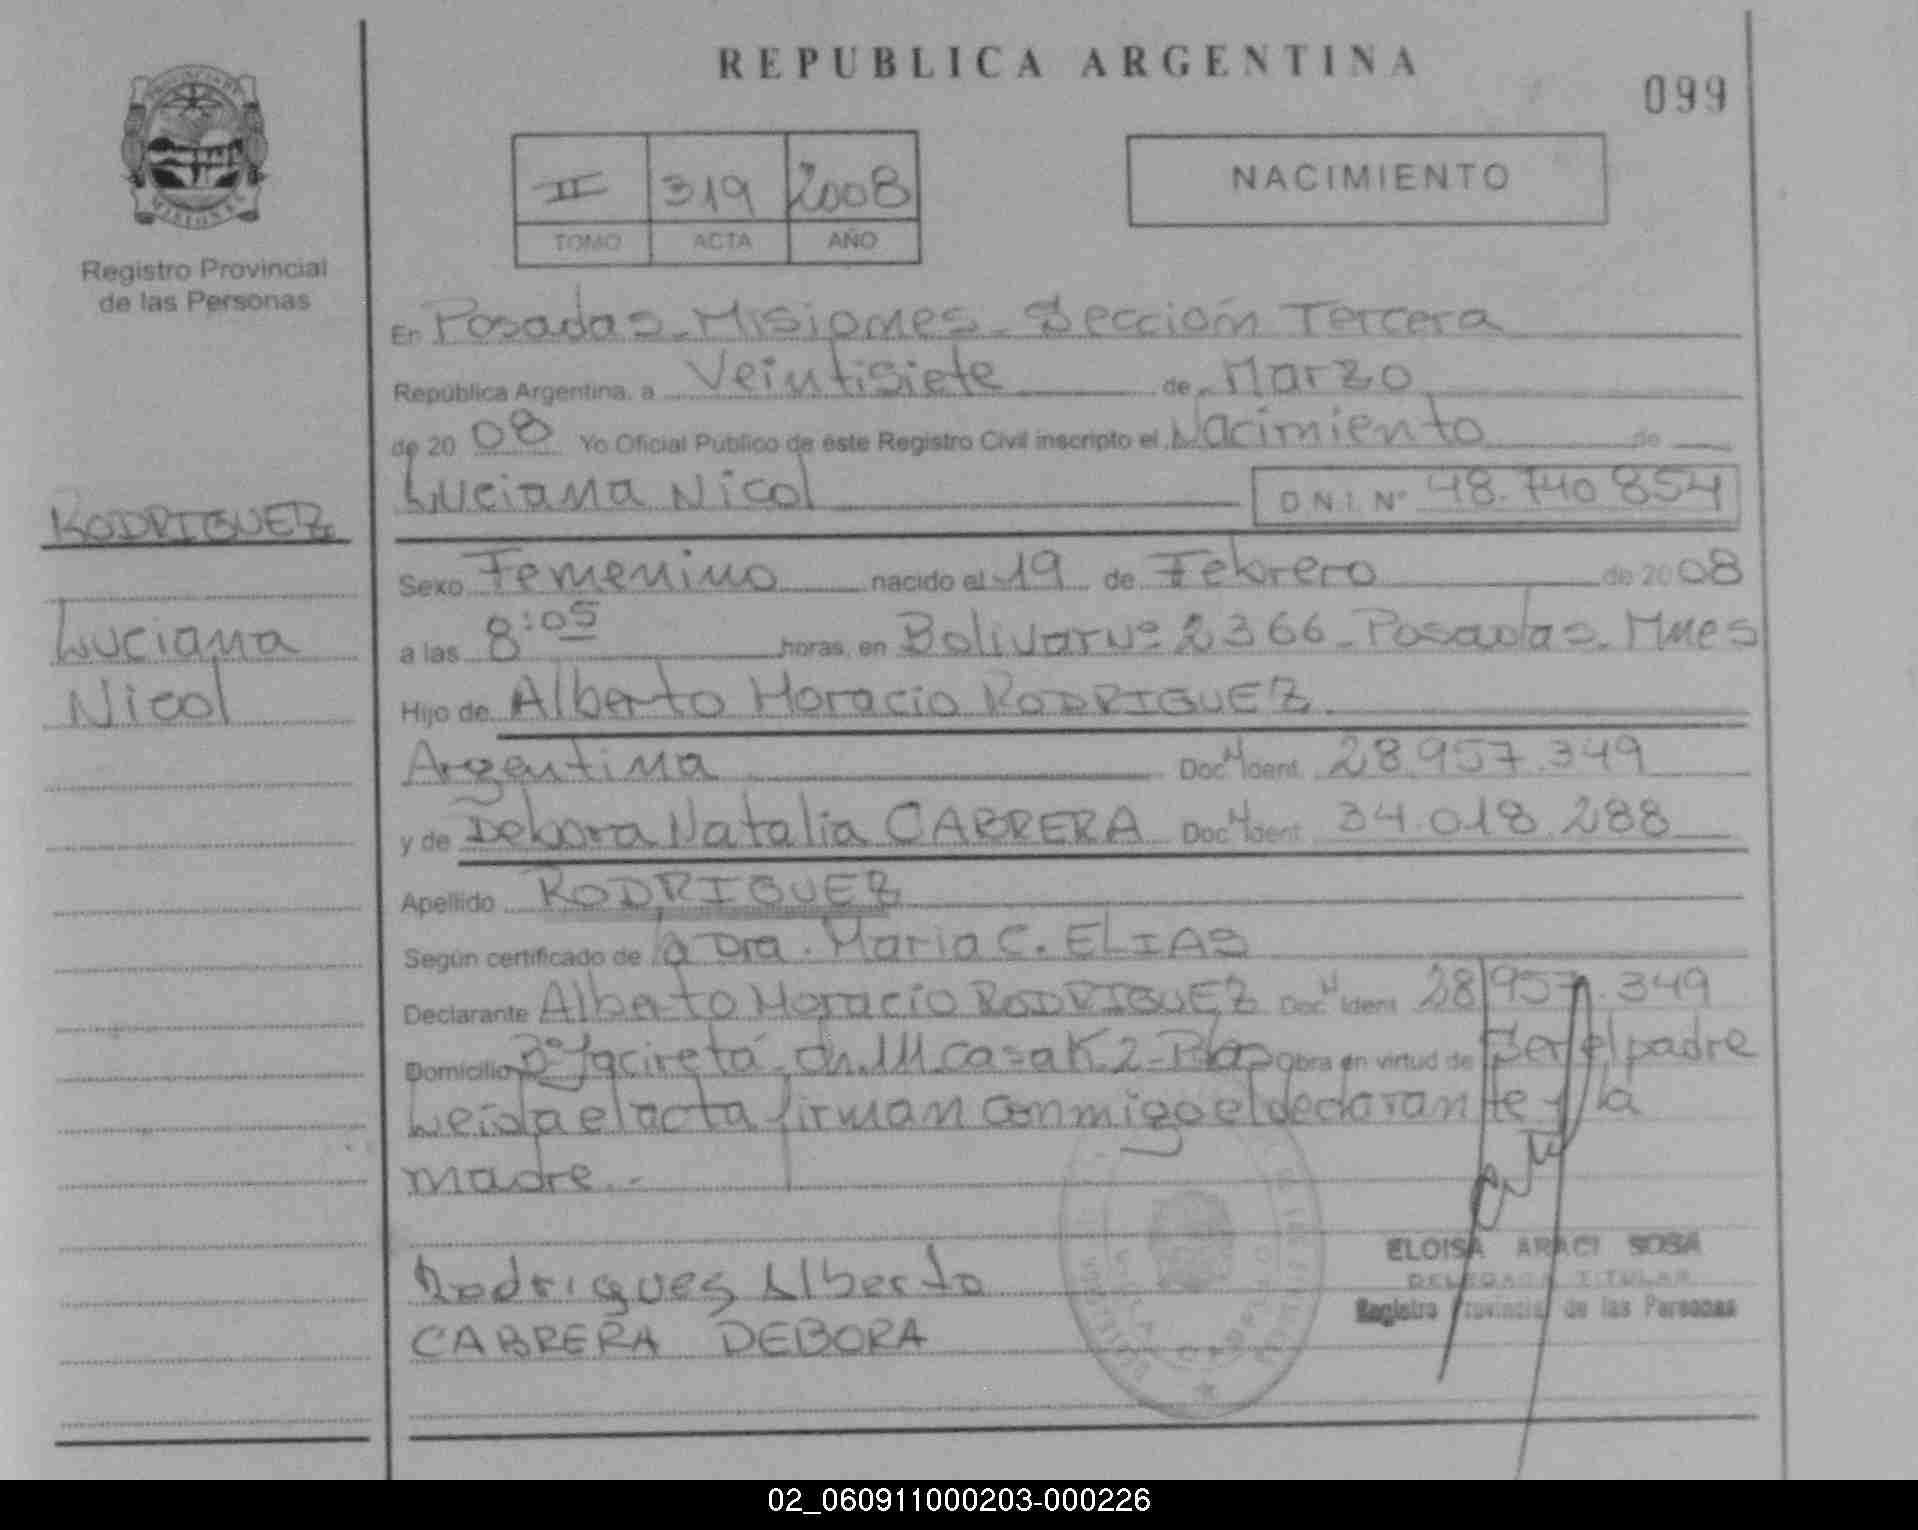 REPUBLICA ARGENTINA
099
II 319 2008
TOMO ACTA AÑO
NACIMIENTO
Registro Provincial
de las Personas
En Posadas - Misiones - Sección Tercera
República Argentina, a Veintisiete de Marzo
de 20 08 Yo Oficial Público de éste Registro Civil inscripto el Nacimiento de
Luciana Nicol D.N.I. Nº 48.740.854
RODRIGUEZ
Luciana
Nicol
Sexo Femenino nacido el 19 de Febrero de 2008
a las 8:05 horas, en Bolivar Nº 2366 - Posadas - Mnes
Hijo de Alberto Horacio RODRIGUEZ.
Argentina Doc. N Ident. 28.957.349
y de Debora Natalia CABRERA Doc. N Ident. 34.018.288
Apellido RODRIGUEZ
Según certificado de la Dra. Maria C. ELIAS
Declarante Alberto Horacio RODRIGUEZ Doc. N Ident. 28.957.349
Domicilio Bº Yacireta - ch. 111 casa K.2 - Pdas Obra en virtud de Ser el padre
Leida el acta firman conmigo el declarante y la
madre.-
Rodrigues Alberto
CABRERA DEBORA
ELOISA ARACI SOSA
DELEGADA TITULAR
Registro Provincial de las Personas
02_060911000203-000226